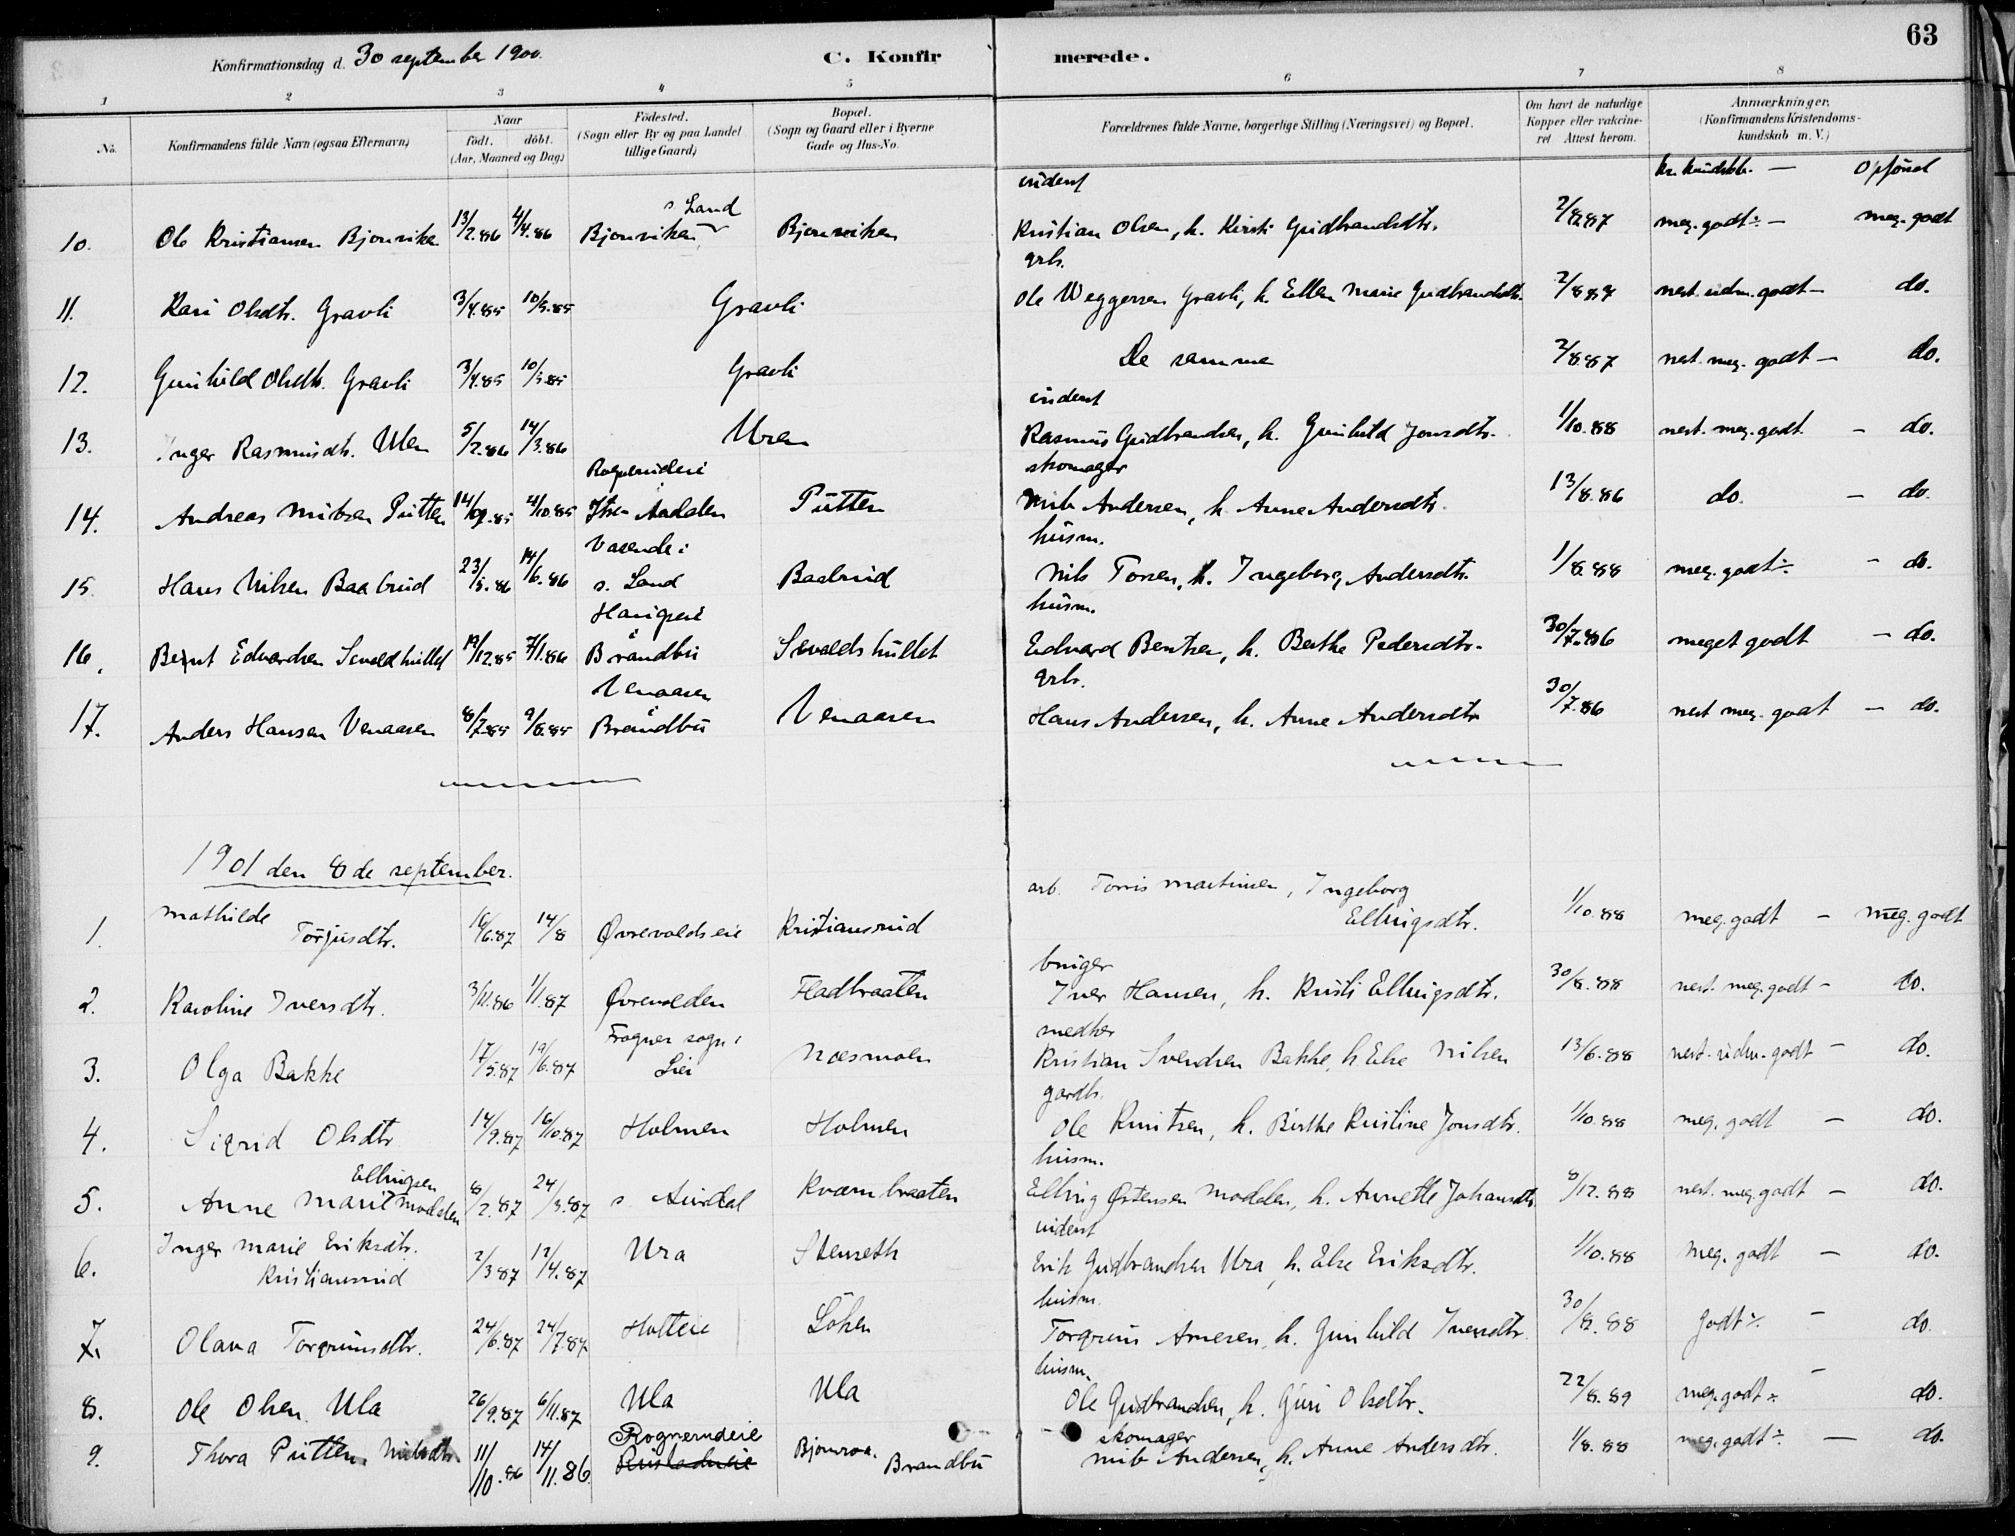 63
Konfirmationsdag d. 30 september 1900.
C. Konfirmerede.
1 2 3 4 5 6 7 8
No.
Konfirmandens fulde Navn (ogsaa Efternavn)
Naar
født. døbt.
(Aar, Maaned og Dag)
Födested.
(Sogn eller By og paa Landet
tillige Gaard)
Bopæl.
(Sogn og Gaard eller i Byerne
Gade og Hus-No.
Forældrenes fulde Navne, borgerlige Stilling (Næringsvei) og Bopæl.
Om havt de naturlige
Kopper eller vakcine-
ret Attest herom.
Anmærkninger.
(Konfirmandens Kristendoms-
kundskab m. V.)
kr. kundskb. — Opførsel
inderst
10. Ole Kristiansen Bjonviken 13/2.86 4/4.86 Bjonviken s. Land Bjonviken Kristian Olsen, h. Kirsti Gudbrandsdtr. 2/8.87 meg. godt ÷ — meg. godt
grb.
11. Kari Olsdtr. Gravli 3/4.85 10/5.85 Gravli Ole Weggersen Gravli, h. Ellen Marie Gudbrandsdtr. 2/8.87 nest. udm. godt — do.
12. Gunhild Olsdtr. Gravli 3/4.85 10/5.85 Gravli De samme 2/8.87 nest. meg. godt — do.
inderst
13. Inger Rasmusdtr. Uren 5/2.86 14/3.86 Uren Rasmus Gudbrandsen, h. Gunhild Jonsdtr. 1/10.88 nest. meg. godt — do.
skomager
14. Andreas Nilsen Putten 14/9.85 4/10.85 Ytre Aadalen Putten Nils Andersen, h. Anne Andersdtr. 13/8.86 do. — do.
husm.
15. Hans Nilsen Baabrud 23/5.86 14/6.86 Vasende i s. Land Baabrud Nils Torsen, h. Ingeborg Andersdtr. 1/8.88 meg. godt ÷ — do.
husm.
16. Bernt Edvardsen Sevaldshullet 19/12.85 7/1.86 i Brandbu Sevaldshullet Edvard Bentsen, h. Berthe Pedersdtr. 30/7.86 meget godt — do.
grb.
17. Anders Hansen Venaasen 8/7.85 9/8.85 Venaasen i Brandbu Venaasen Hans Andersen, h. Anne Andersdtr. 30/7.86 nest meg. godt — do.
1901 den 8de september.
1. Mathilde Torjusdtr. 16/6.87 14/8 Øvrevoldseie Kristiansrud arb. Torris Martinsen, Ingeborg Ellingsdtr. 1/10.88 meg. godt — meg. godt
bruger
2. Karoline Iversdtr. 3/11.86 1/1.87 Øvrevolden Fladbraaten Iver Hansen, h. Kristi Ellingsdtr. 30/8.88 nest. meg. godt — do.
3. Olga Bakke 17/5.87 19/6.87 Frogner sogn i Lier Næsmoen Kristian Svendsen Bakke, h. Else Nilsen 13/6.88 nest. udm. godt — do.
gardb.
4. Sigrid Olsdtr. 14/9.87 16/10.87 Holmen Holmen Ole Knutsen, h. Birthe Kristine Jonsdtr. 1/10.88 meg. godt — do.
husm.
5. Anne Marit Ellingsen Modalen 8/2.87 24/3.87 s. Aurdal Kvernbraaten Elling Østensen Modalen, h. Annette Johansdtr. 8/12.88 nest. meg. godt — do.
inderst
6. Inger Marie Eriksdtr. Kristiansrud 2/3.87 12/4.87 Ura Stenseth Erik Gudbrandsen Ura, h. Else Eriksdtr. 1/10.88 meg. godt — do.
husm.
7. Olava Torgrimsdtr. 24/6.87 24/7.87 Hotteie Løken Torgrim Arnesen, h. Gunhild Iversdtr. 30/8.88 godt ÷ — do.
husm.
8. Ole Olsen Ula 26/9.87 6/11.87 Ula Ula Ole Gudbrandsen, h. Guri Olsdtr. 22/8.89 meg. godt ÷ — do.
skomager
9. Thora Putten Nilsdtr. 11/10.86 14/11.86 Rognerudeie Bjonroa. Brandbu Nils Andersen, h. Anne Andersdtr. 1/8.88 meg. godt ÷ — do.